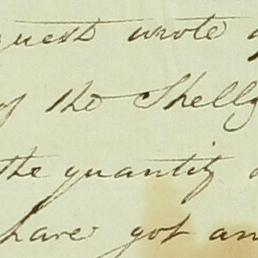 quest wrote
of the Shelly
the quantity
have got an